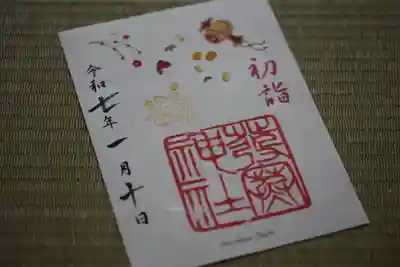 初詣
神社
令和七年一月十日